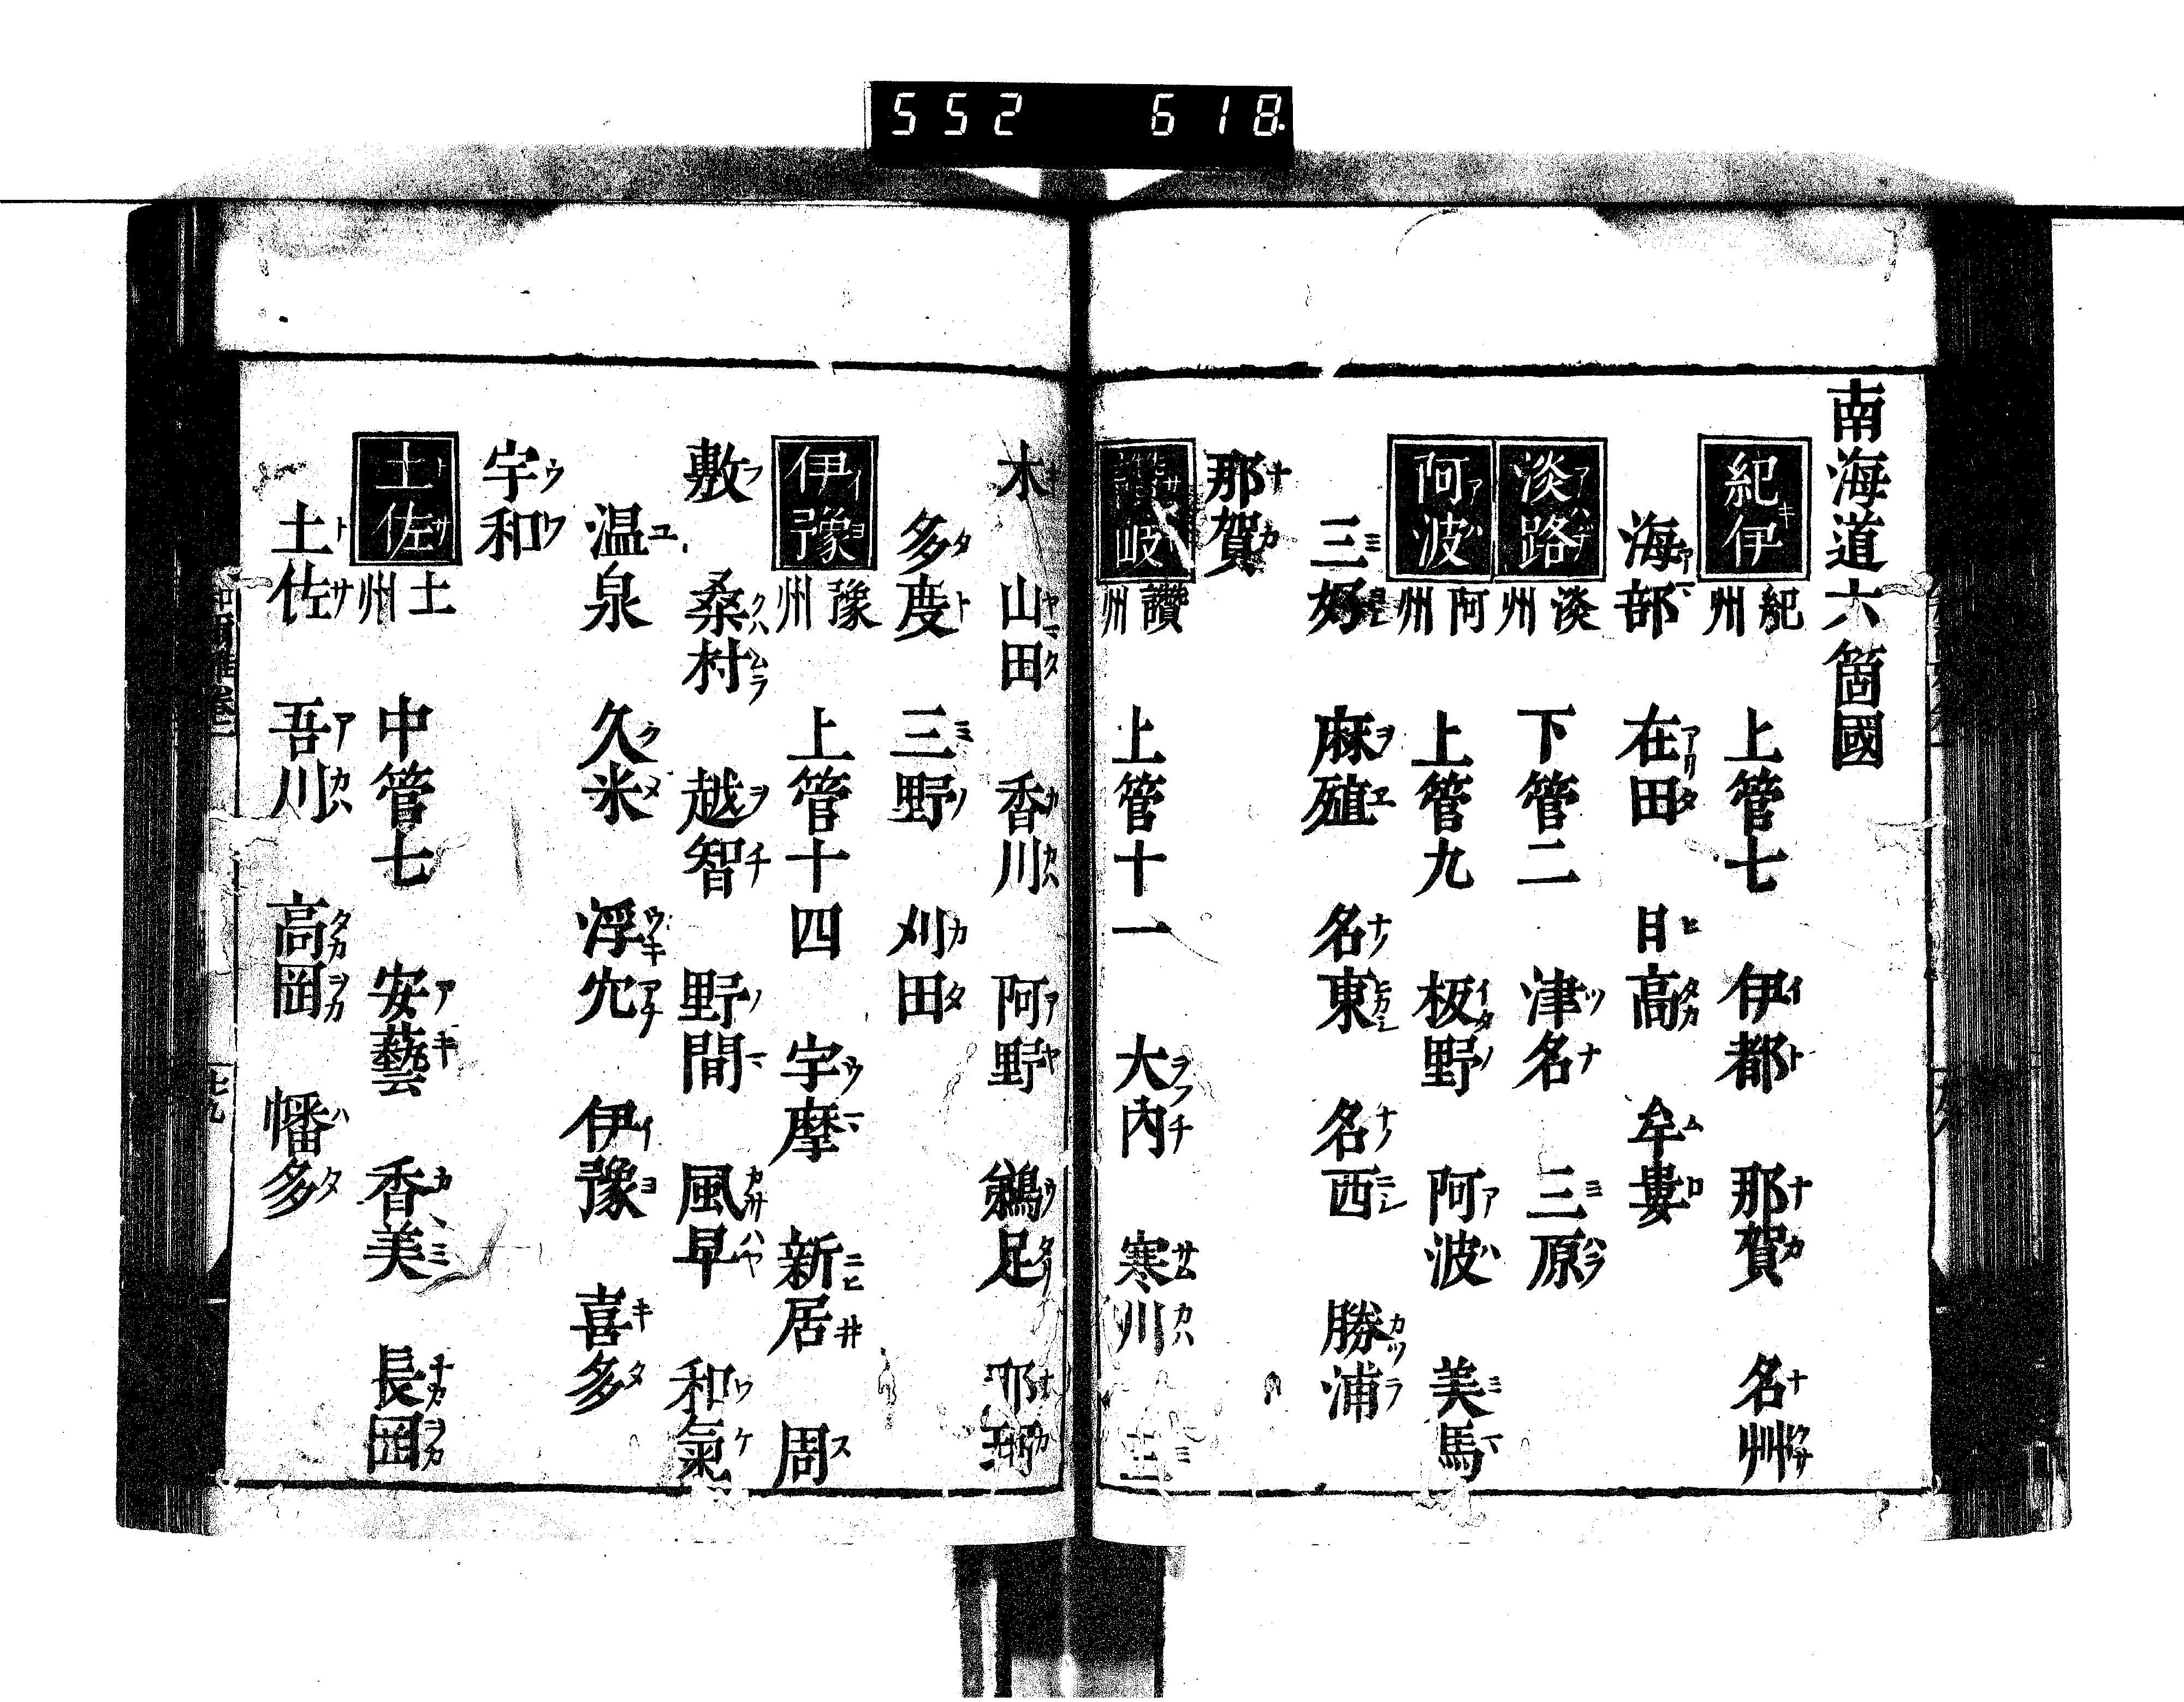 552 618
南海道六箇國
紀伊 紀州 上管七 伊都 那賀 名艸
海部 在田 日高 牟婁
淡路 淡州 下管二 津名 三原
阿波 阿州 上管九 板野 阿波 美馬
三好 麻殖 名東 名西 勝浦
那賀
讃岐 讚州 上管十一 大内 寒川 三
木 山田 香川 阿野 鵜足 那珂
多度 三野 刈田
伊豫 豫州 上管十四 宇摩 新居 周
敷 桑村 越智 野間 風早 和氣
温泉 久米 浮穴 伊豫 喜多
宇和
土佐 土州 中管七 安藝 香美 長岡
土佐 吾川 高岡 幡多